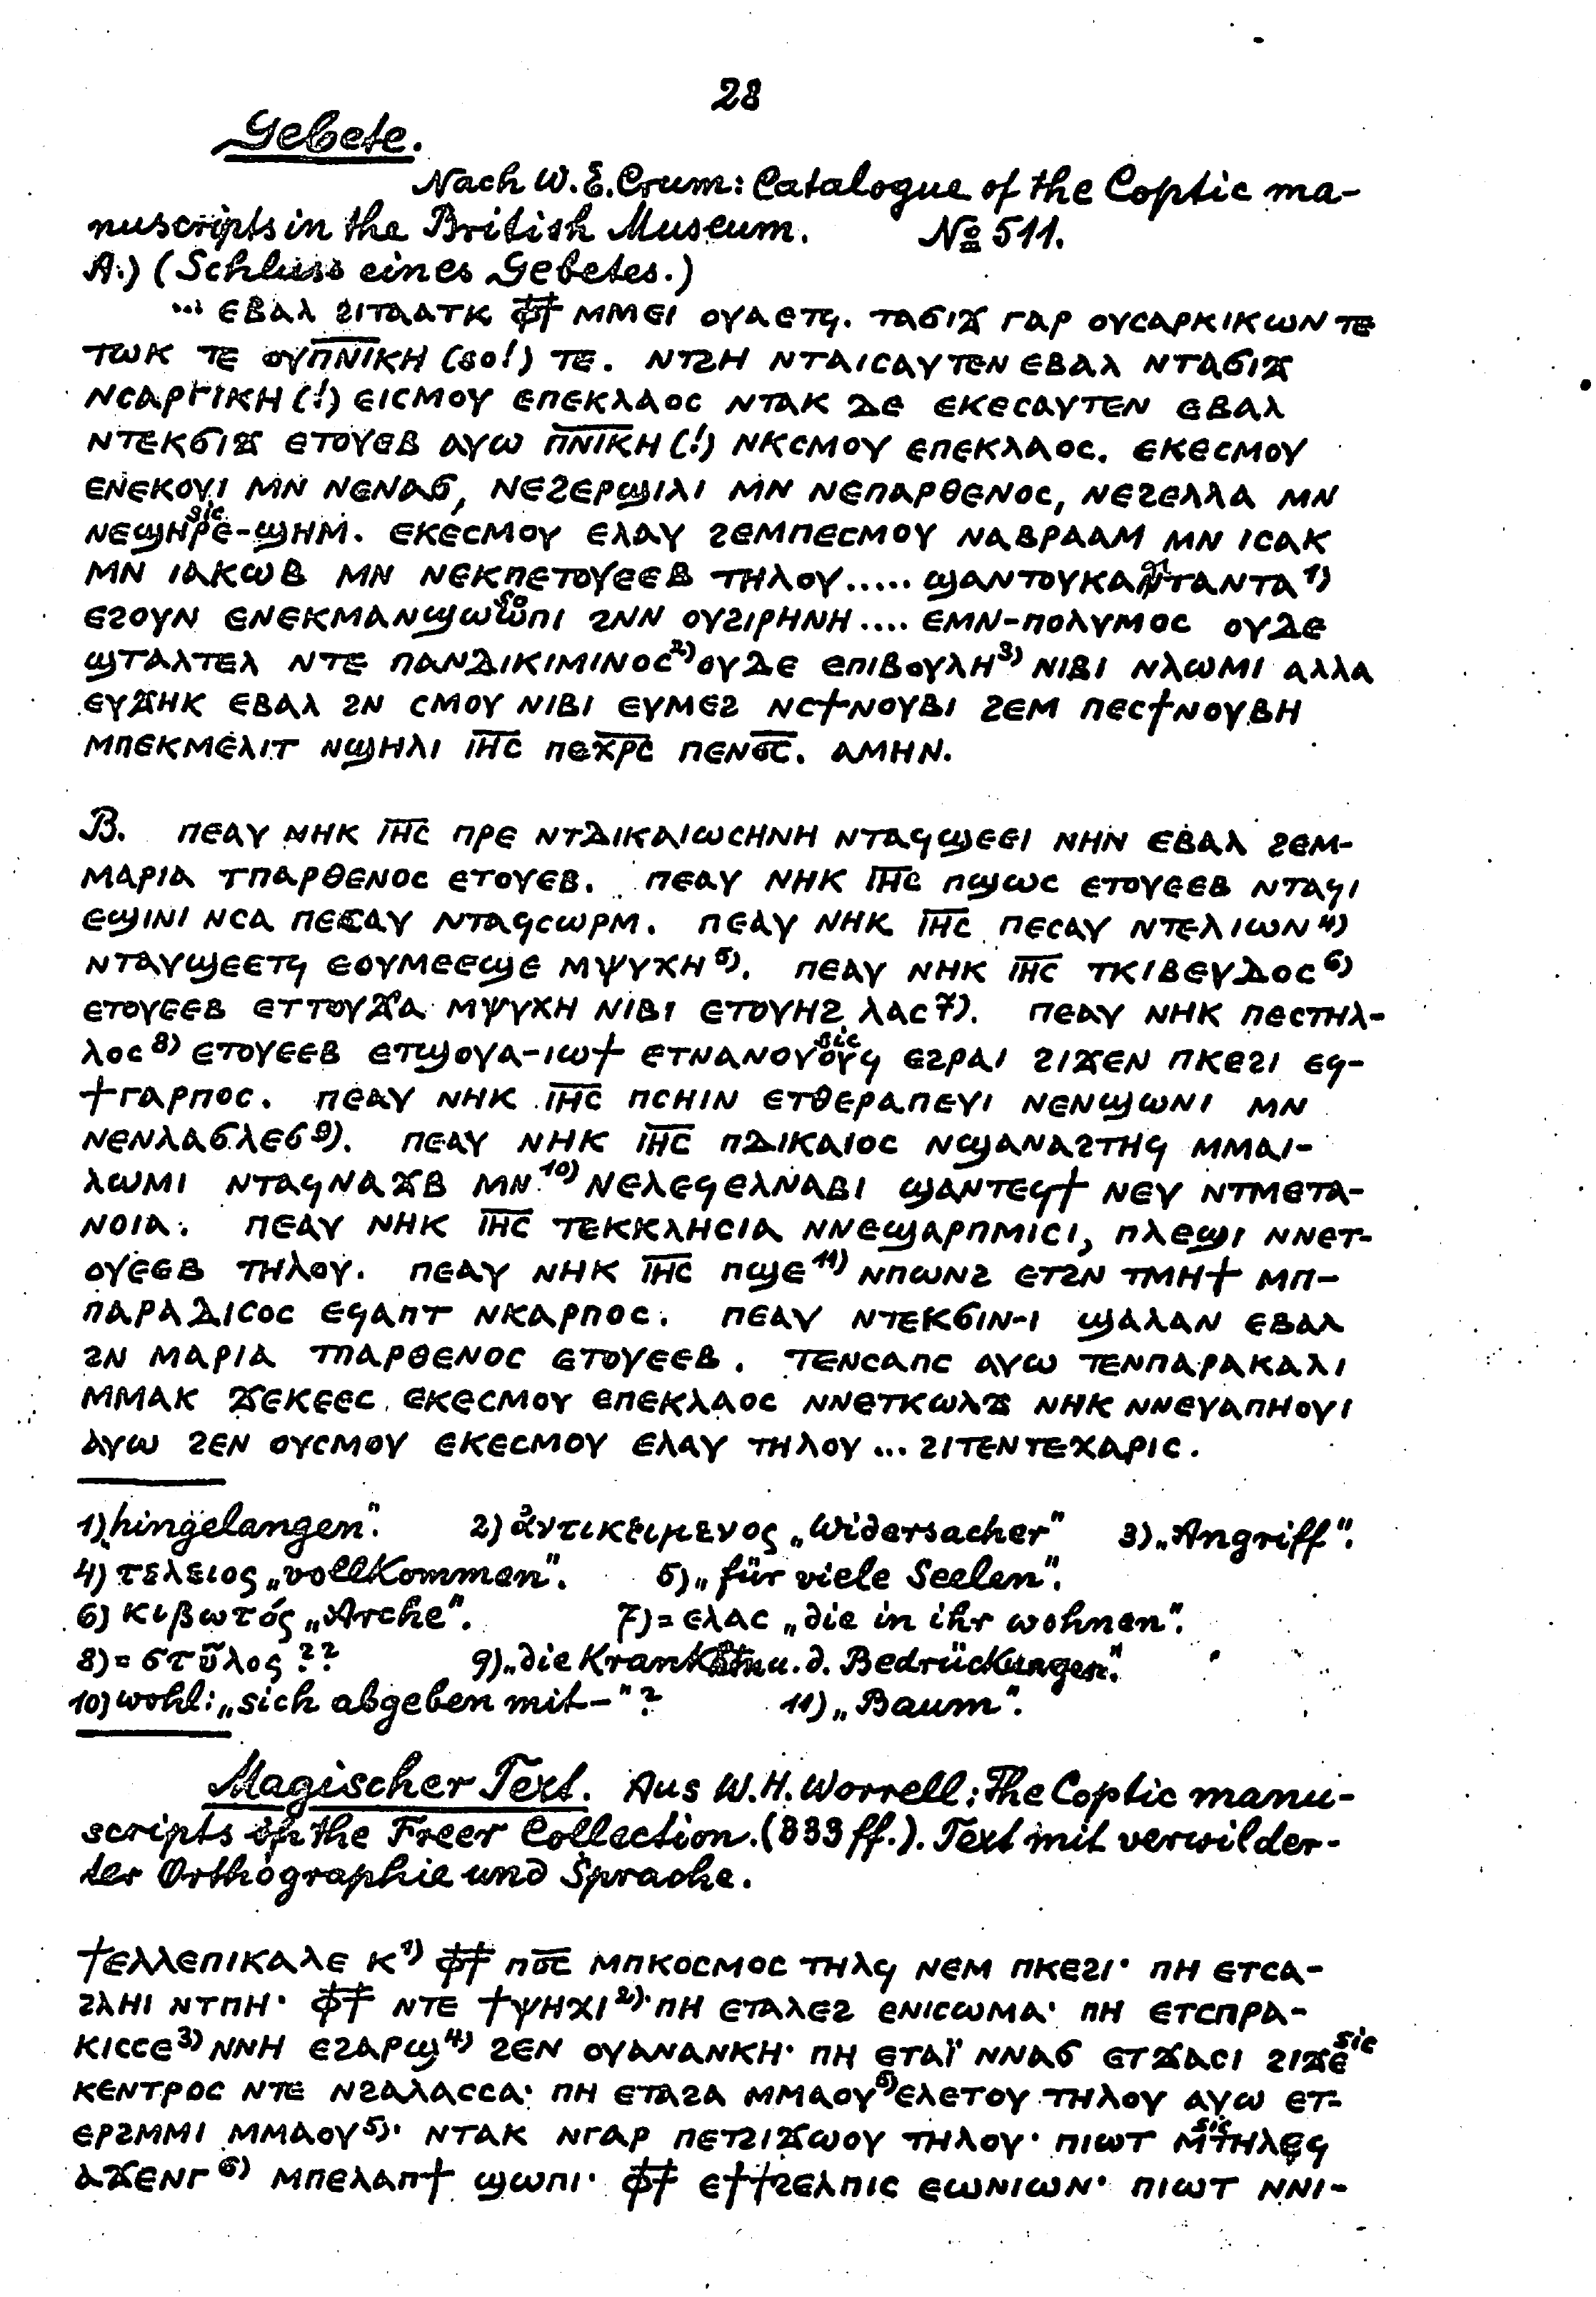 28
Gebete.
Nach W. E. Crum: Catalogue of the Coptic ma-
nuscripts in the British Museum. № 511.
A.) (Schluss eines Gebetes.)
... ⲉⲃⲁⲗ ϩⲓⲧⲁⲁⲧⲕ ⲫϯ ⲙⲙⲉⲓ ⲟⲩⲁⲉⲧϥ. ⲧⲁϭⲓϫ ⲅⲁⲣ ⲟⲩⲥⲁⲣⲕⲓⲕⲱⲛ ⲧⲉ
ⲧⲱⲕ ⲧⲉ ⲟⲩⲡ̅ⲛ̅ⲓ̅ⲕⲏ (so!) ⲧⲉ. ⲛⲧϩⲏ ⲛⲧⲁⲓⲥⲁⲩⲧⲉⲛ ⲉⲃⲁⲗ ⲛⲧⲁϭⲓϫ
ⲛⲥⲁⲣⲅⲓⲕⲏ (!) ⲉⲓⲥⲙⲟⲩ ⲉⲡⲉⲕⲗⲁⲟⲥ ⲛⲧⲁⲕ ⲇⲉ ⲉⲕⲉⲥⲁⲩⲧⲉⲛ ⲉⲃⲁⲗ
ⲛⲧⲉⲕϭⲓϫ ⲉⲧⲟⲩⲉⲃ ⲁⲩⲱ ⲡ̅ⲛ̅ⲓ̅ⲕⲏ (!) ⲛⲕⲥⲙⲟⲩ ⲉⲡⲉⲕⲗⲁⲟⲥ. ⲉⲕⲉⲥⲙⲟⲩ
ⲉⲛⲉⲕⲟⲩⲓ ⲙⲛ ⲛⲉⲛⲁϭ, ⲛⲉϩⲉⲣϣⲓⲗⲓ ⲙⲛ ⲛⲉⲡⲁⲣⲑⲉⲛⲟⲥ, ⲛⲉϩⲉⲗⲗⲁ ⲙⲛ
ⲛⲉϣⲏⲣⲉ-ϣⲏⲙ. (sic) ⲉⲕⲉⲥⲙⲟⲩ ⲉⲗⲁⲩ ϩⲉⲙⲡⲉⲥⲙⲟⲩ ⲛⲁⲃⲣⲁⲁⲙ ⲙⲛ ⲓⲥⲁⲕ
ⲙⲛ ⲓⲁⲕⲱⲃ ⲙⲛ ⲛⲉⲕⲡⲉⲧⲟⲩⲉⲉⲃ ⲧⲏⲗⲟⲩ..... ϣⲁⲛⲧⲟⲩⲕⲁⲛⲧⲁⲛⲧⲁ 1)
ⲉϩⲟⲩⲛ ⲉⲛⲉⲕⲙⲁⲛϣⲱⲱⲡⲓ (so) ϩⲛⲛ ⲟⲩϩⲓⲣⲏⲛⲏ.... ⲉⲙⲛ-ⲡⲟⲗⲩⲙⲟⲥ ⲟⲩⲇⲉ
ϣⲧⲁⲗⲧⲉⲗ ⲛⲧⲉ ⲡⲁⲛⲇⲓⲕⲓⲙⲓⲛⲟⲥ 2) ⲟⲩⲇⲉ ⲉⲡⲓⲃⲟⲩⲗⲏ 3) ⲛⲓⲃⲓ ⲛⲗⲱⲙⲓ ⲁⲗⲗⲁ
ⲉⲩϫⲏⲕ ⲉⲃⲁⲗ ϩⲛ ⲥⲙⲟⲩ ⲛⲓⲃⲓ ⲉⲩⲙⲉϩ ⲛⲥϯⲛⲟⲩⲃⲓ ϩⲉⲙ ⲡⲉⲥϯⲛⲟⲩⲃⲏ
ⲙⲡⲉⲕⲙⲉⲗⲓⲧ ⲛϣⲏⲗⲓ ⲓ̅ⲏ̅ⲥ̅ ⲡⲉⲭ̅ⲣ̅ⲥ̅ ⲡⲉⲛϭ̅ⲥ̅. ⲁⲙⲏⲛ.
B. ⲡⲉⲁⲩ ⲛⲏⲕ ⲓ̅ⲏ̅ⲥ̅ ⲡⲣⲉ ⲛⲧⲇⲓⲕⲁⲓⲱⲥⲏⲛⲏ ⲛⲧⲁϥϣⲉⲉⲓ ⲛⲏⲛ ⲉⲃⲁⲗ ϩⲉⲙ-
ⲙⲁⲣⲓⲁ ⲧⲡⲁⲣⲑⲉⲛⲟⲥ ⲉⲧⲟⲩⲉⲃ. ⲡⲉⲁⲩ ⲛⲏⲕ ⲓ̅ⲏ̅ⲥ̅ ⲡϣⲱⲥ ⲉⲧⲟⲩⲉⲉⲃ ⲛⲧⲁϥⲓ
ⲉϣⲓⲛⲓ ⲛⲥⲁ ⲡⲉⲥⲁⲩ ⲛⲧⲁϥⲥⲱⲣⲙ. ⲡⲉⲁⲩ ⲛⲏⲕ ⲓ̅ⲏ̅ⲥ̅ ⲡⲉⲥⲁⲩ ⲛⲧⲉⲗⲓⲱⲛ 4)
ⲛⲧⲁⲩϣⲉⲉⲧϥ ⲉⲟⲩⲙⲉⲉϣⲉ ⲙⲯⲩⲭⲏ 5). ⲡⲉⲁⲩ ⲛⲏⲕ ⲓ̅ⲏ̅ⲥ̅ ⲧⲕⲓⲃⲉⲩⲇⲟⲥ 6)
ⲉⲧⲟⲩⲉⲉⲃ ⲉⲧⲧⲟⲩϫⲁ ⲙⲯⲩⲭⲏ ⲛⲓⲃⲓ ⲉⲧⲟⲩⲏϩ ⲗⲁⲥ 7). ⲡⲉⲁⲩ ⲛⲏⲕ ⲡⲉⲥⲧⲏⲗ-
ⲗⲟⲥ 8) ⲉⲧⲟⲩⲉⲉⲃ ⲉⲧϣⲟⲩⲁ-ⲓⲱϯ ⲉⲧⲛⲁⲛⲟⲩⲟⲩϥ (sic) ⲉϩⲣⲁⲓ ϩⲓϫⲉⲛ ⲡⲕⲉϩⲓ ⲉϥ-
ϯⲅⲁⲣⲡⲟⲥ. ⲡⲉⲁⲩ ⲛⲏⲕ ⲓ̅ⲏ̅ⲥ̅ ⲡⲥⲏⲓⲛ ⲉⲧⲑⲉⲣⲁⲡⲉⲩⲓ ⲛⲉⲛϣⲱⲛⲓ ⲙⲛ
ⲛⲉⲛⲗⲁϭⲗⲉϭ 9). ⲡⲉⲁⲩ ⲛⲏⲕ ⲓ̅ⲏ̅ⲥ̅ ⲡⲇⲓⲕⲁⲓⲟⲥ ⲛϣⲁⲛⲁϩⲧⲏϥ ⲙⲙⲁⲓ-
ⲗⲱⲙⲓ ⲛⲧⲁϥⲛⲁϫⲃ ⲙⲛ 10) ⲛⲉⲗⲉϥⲉⲗⲛⲁⲃⲓ ϣⲁⲛⲧⲉϥϯ ⲛⲉⲩ ⲛⲧⲙⲉⲧⲁ-
ⲛⲟⲓⲁ. ⲡⲉⲁⲩ ⲛⲏⲕ ⲓ̅ⲏ̅ⲥ̅ ⲧⲉⲕⲕⲗⲏⲥⲓⲁ ⲛⲛⲉϣⲁⲣⲡⲙⲓⲥⲓ, ⲡⲗⲉϣⲓ ⲛⲛⲉⲧ-
ⲟⲩⲉⲉⲃ ⲧⲏⲗⲟⲩ. ⲡⲉⲁⲩ ⲛⲏⲕ ⲓ̅ⲏ̅ⲥ̅ ⲡϣⲉ 11) ⲛⲡⲱⲛϩ ⲉⲧϩⲛ ⲧⲙⲏϯ ⲙⲡ-
ⲡⲁⲣⲁⲇⲓⲥⲟⲥ ⲉϥⲁⲡⲧ ⲛⲕⲁⲣⲡⲟⲥ. ⲡⲉⲁⲩ ⲛⲧⲉⲕϭⲓⲛ-ⲓ ϣⲁⲗⲁⲛ ⲉⲃⲁⲗ
ϩⲛ ⲙⲁⲣⲓⲁ ⲧⲡⲁⲣⲑⲉⲛⲟⲥ ⲉⲧⲟⲩⲉⲉⲃ. ⲧⲉⲛⲥⲁⲡⲥ ⲁⲩⲱ ⲧⲉⲛⲡⲁⲣⲁⲕⲁⲗⲓ
ⲙⲙⲁⲕ ϫⲉⲕⲉⲉⲥ ⲉⲕⲉⲥⲙⲟⲩ ⲉⲡⲉⲕⲗⲁⲟⲥ ⲛⲛⲉⲧⲕⲱⲗϫ ⲛⲏⲕ ⲛⲛⲉⲩⲁⲡⲏⲟⲩⲓ
ⲁⲩⲱ ϩⲉⲛ ⲟⲩⲥⲙⲟⲩ ⲉⲕⲉⲥⲙⲟⲩ ⲉⲗⲁⲩ ⲧⲏⲗⲟⲩ... ϩⲓⲧⲉⲛⲧⲉⲭⲁⲣⲓⲥ.
1) „hingelangen“. 2) ἀντικείμενος „Widersacher“ 3) „Angriff“.
4) τελειος „vollkommen“. 5) „für viele Seelen“.
6) κιβωτός „Arche“. 7) = ⲉⲗⲁⲥ „die in ihr wohnen“.
8) = στῦλος ?? 9) „die Krankhtn u. d. Bedrückungen“.
10) wohl: „sich abgeben mit-“? 11) „Baum“.
Magischer Text. Aus W. H. Worrell: The Coptic manu-
scripts in the Freer Collection. (333 ff.). Text mit verwilder-
ter Orthographie und Sprache.
ϯⲉⲗⲗⲉⲡⲓⲕⲁⲗⲉ ⲕ 1) ⲫϯ ⲡϭ̅ⲥ̅ ⲙⲡⲕⲟⲥⲙⲟⲥ ⲧⲏⲗϥ ⲛⲉⲙ ⲡⲕⲉϩⲓ· ⲡⲏ ⲉⲧⲥⲁ-
ϩⲗⲏⲓ ⲛⲧⲡⲏ· ⲫϯ ⲛⲧⲉ ϯⲯⲏⲭⲓ 2)· ⲡⲏ ⲉⲧⲁⲗⲉϩ ⲉⲛⲓⲥⲱⲙⲁ· ⲡⲏ ⲉⲧⲥⲡⲣⲁ-
ⲕⲓⲥⲥⲉ 3) ⲛⲛⲏ ⲉϩⲁⲣϣ 4) ϩⲉⲛ ⲟⲩⲁⲛⲁⲛⲕⲏ· ⲡⲏ ⲉⲧⲁⲓ̈ ⲛⲛⲁϭ ⲉⲧϫⲁⲥⲓ ϩⲓϫⲉ (sic)
ⲕⲉⲛⲧⲣⲟⲥ ⲛⲧⲉ ⲛϩⲁⲗⲁⲥⲥⲁ· ⲡⲏ ⲉⲧⲁϩⲁ ⲙⲙⲁⲟⲩ 5) ⲉⲗⲉⲧⲟⲩ ⲧⲏⲗⲟⲩ ⲁⲩⲱ ⲉⲧ-
ⲉⲣϩⲙⲙⲓ ⲙⲙⲁⲟⲩ 5)· ⲛⲧⲁⲕ ⲛⲅⲁⲣ ⲡⲉⲧϩⲓϫⲱⲟⲩ ⲧⲏⲗⲟⲩ· ⲡⲓⲱⲧ ⲙⲧⲏⲗⲉϥ (sic)
ⲁϫⲉⲛⲅ 6) ⲙⲡⲉⲗⲁⲡϯ ϣⲱⲡⲓ· ⲫϯ ⲉϯϯϩⲉⲗⲡⲓⲥ ⲉⲱⲛⲓⲱⲛ· ⲡⲓⲱⲧ ⲛⲛⲓ-